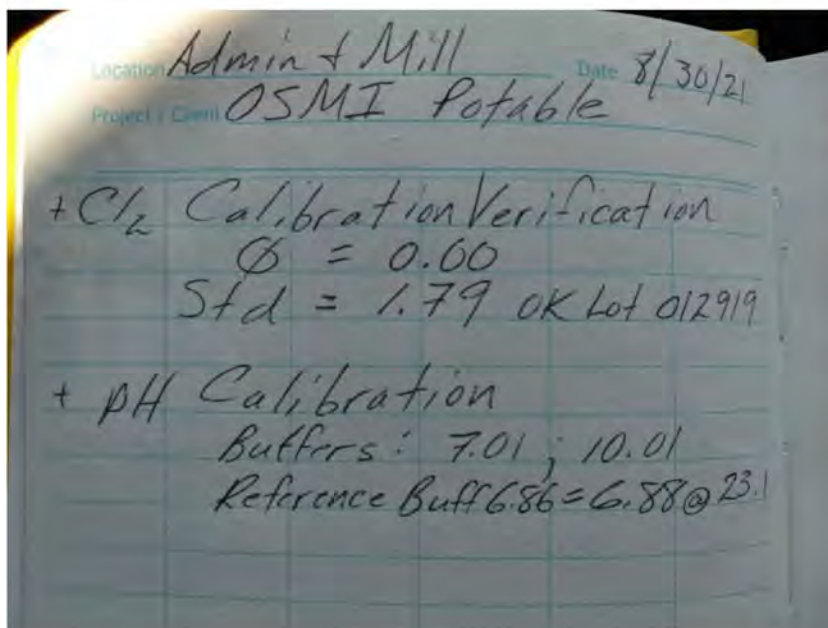 Location Admin + Mill Date 8/30/21
Project / Client OSMI Potable
+ Cl2 Calibration Verification
Ø = 0.00
Std = 1.79 OK Lot 012919
+ pH Calibration
Buffers: 7.01 ; 10.01
Reference Buff 6.86 = 6.88 @ 23.1